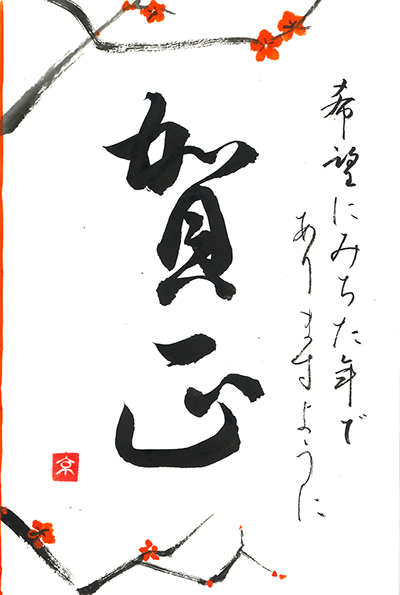 希望にみちた年で
ありますように
賀正
京